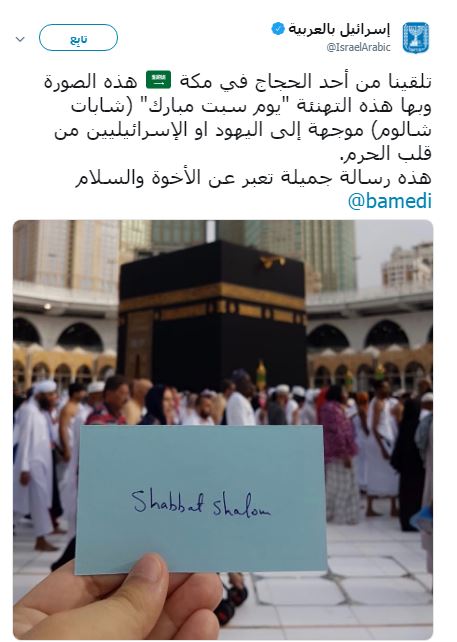 إسرائيل بالعربية
@IsraelArabic
تابِع
تلقينا من أحد الحجاج في مكة 🇸🇦 هذه الصورة
وبها هذه التهنئة "يوم سبت مبارك" (شابات
شالوم) موجهة إلى اليهود او الإسرائيليين من
قلب الحرم.
هذه رسالة جميلة تعبر عن الأخوة والسلام
@bamedi
Shabbat Shalom